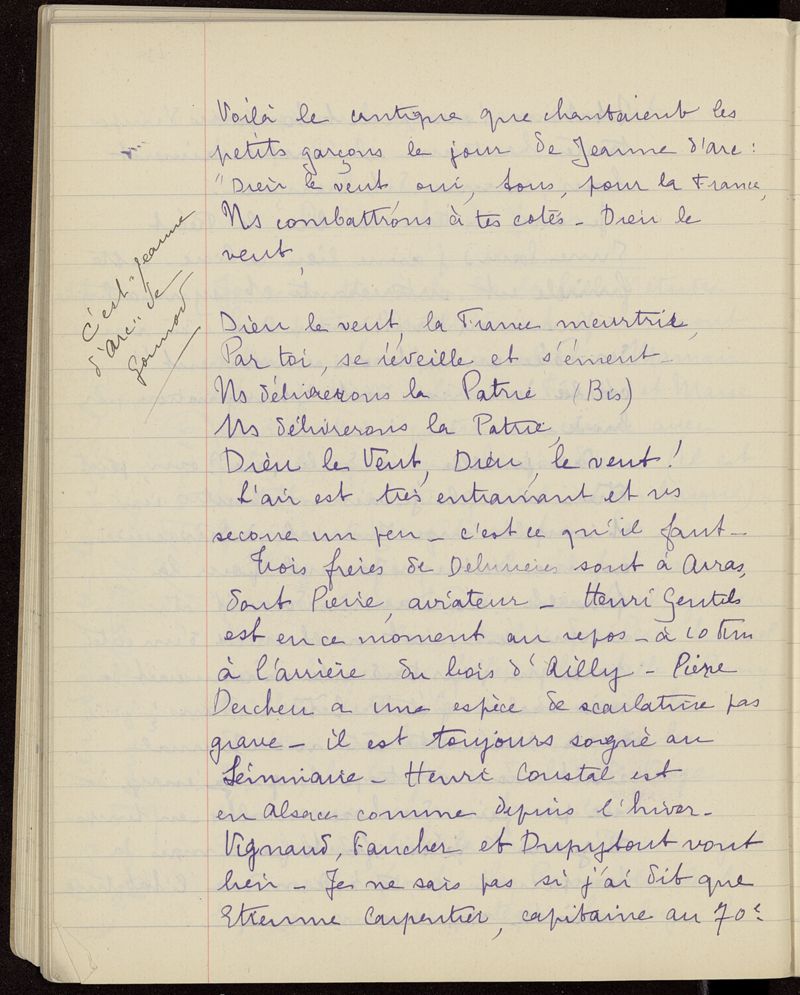 Voilà le cantique que chantaient les
petits garçons le jour de Jeanne d'arc :
"Dieu le veut, oui, tous, pour la France,
Ns combattrons à tes cotés - Dieu le
veut,
c'est "Jeanne
d'arc" de
Gounod
Dieu le veut, la France meurtrie,
Par toi, se réveille et s'émeut -
Ns délivrerons la Patrie (Bis)
Ns délivrerons la Patrie,
Dieu le Veut, Dieu, le veut !
L'air est très entrainant et ns
secoue un peu - c'est ce qu'il faut -
Trois frères de sont à Arras,
dont Pierre, aviateur - Henri Gentils
est en ce moment au repos - à 10 Km
à l'arrière du bois d'Ailly - Pierre
Dercheu a une espèce de scarlatine pas
grave - il est toujours soigné au
Séminaire - Henri Coustal est
en Alsace comme depuis l'hiver -
Vignaud, Faucher et Dupuytout vont
bien - Je ne sais pas si j'ai dit que
Etienne Carpentier, capitaine au 70e